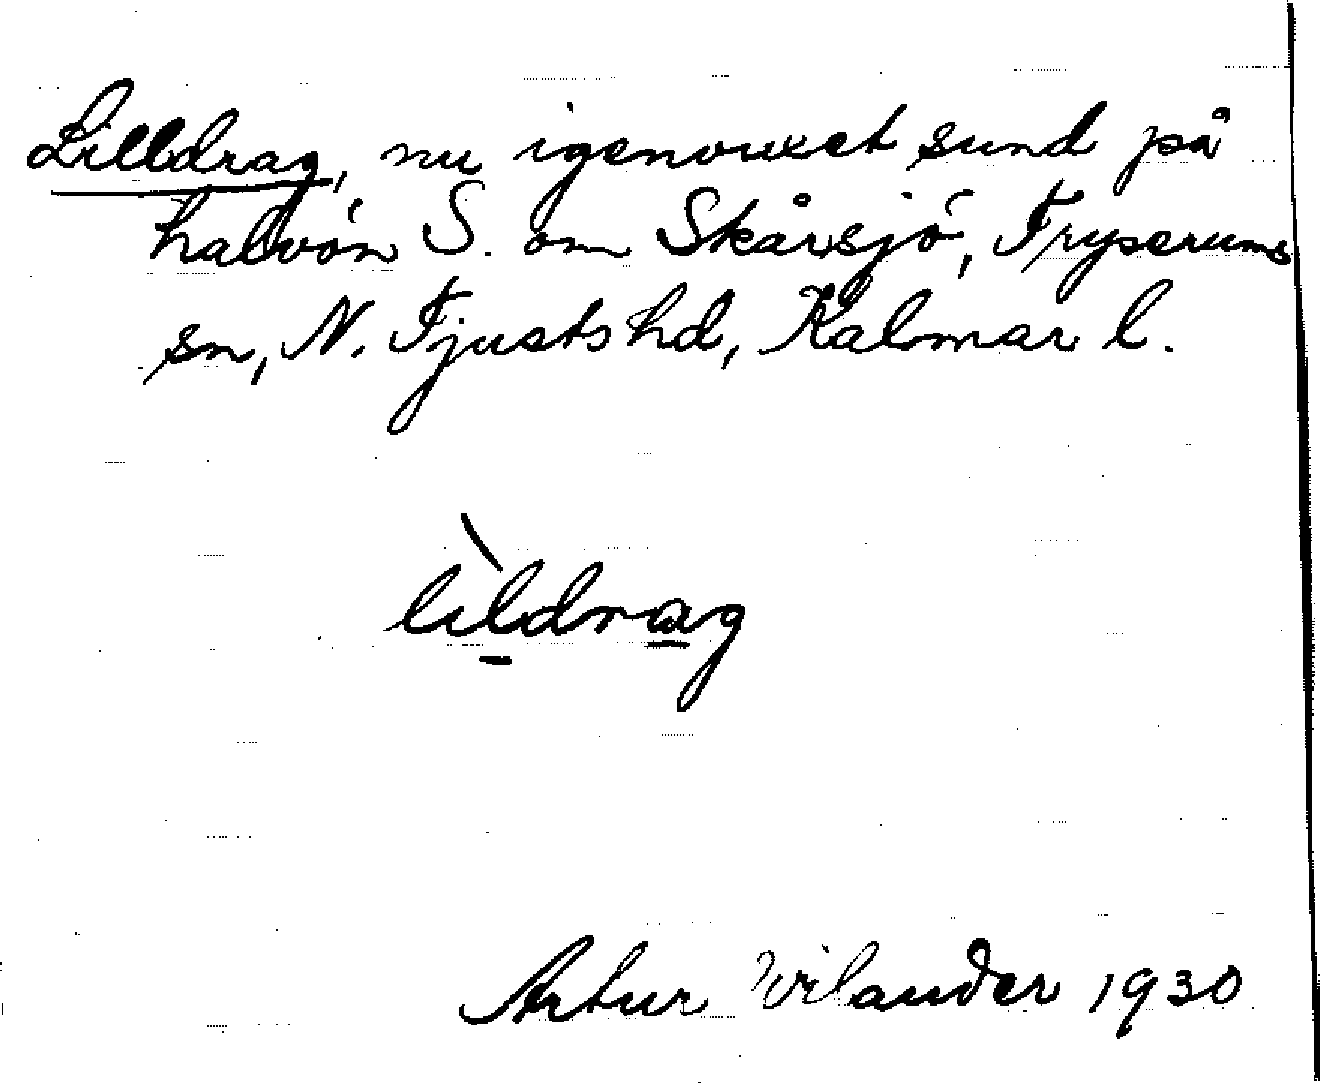 Lilldrag, nu igenvuxet sund på
halvön S. om Skårsjö, Tryserums
sn, N. Tjusts hd, Kalmar l.
lìldrag
Artur Vilander 1930